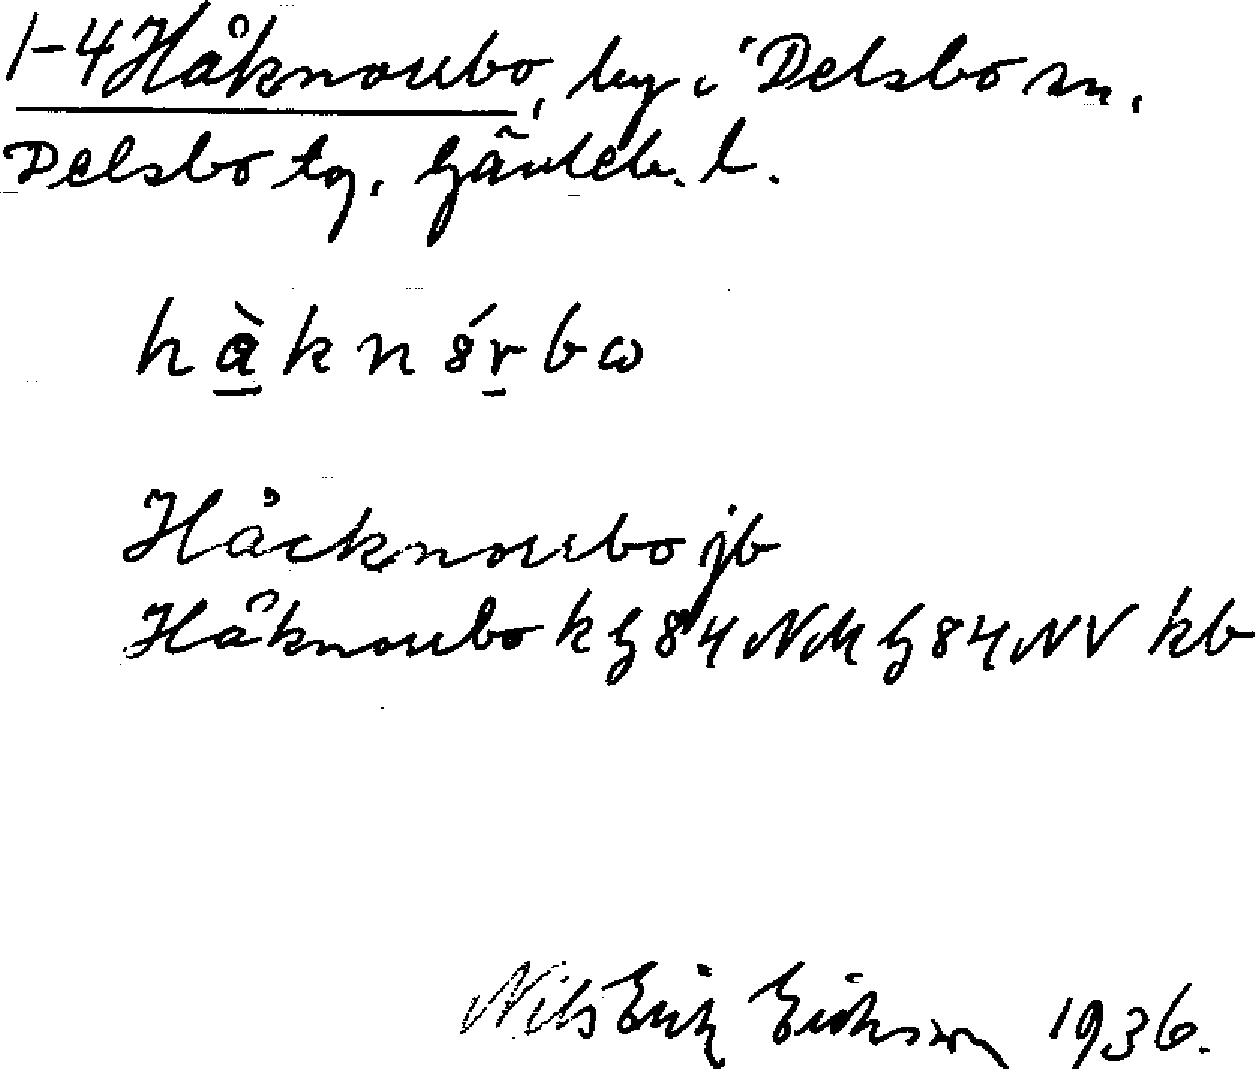 1-4 Håknorrbo, by i Delsbo sn,
Delsbo tg, Gävleb. l.
hàknórbω
Håcknorrbo jb
Håknorrbo k G 84 NM G 84 NV kb
Nils Erik Erikson 1936.